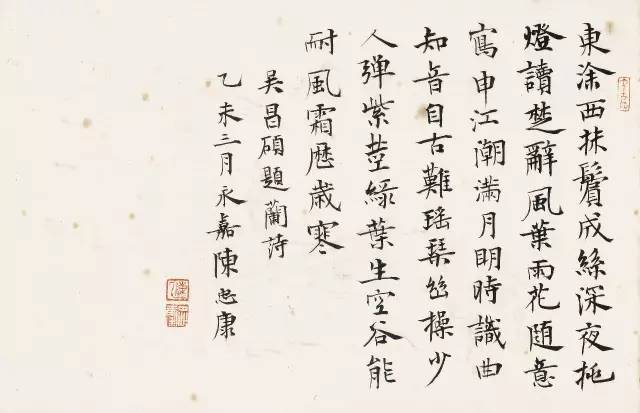 東涂西抹鬢成絲深夜挑
燈讀楚辭風葉雨花隨意
寫申江潮滿月明時識曲
知音自古難瑤琴幽操少
人弹紫莖綠葉生空谷能
耐風霜歷歲寒
吴昌碩題蘭詩
乙未三月永嘉陳忠康